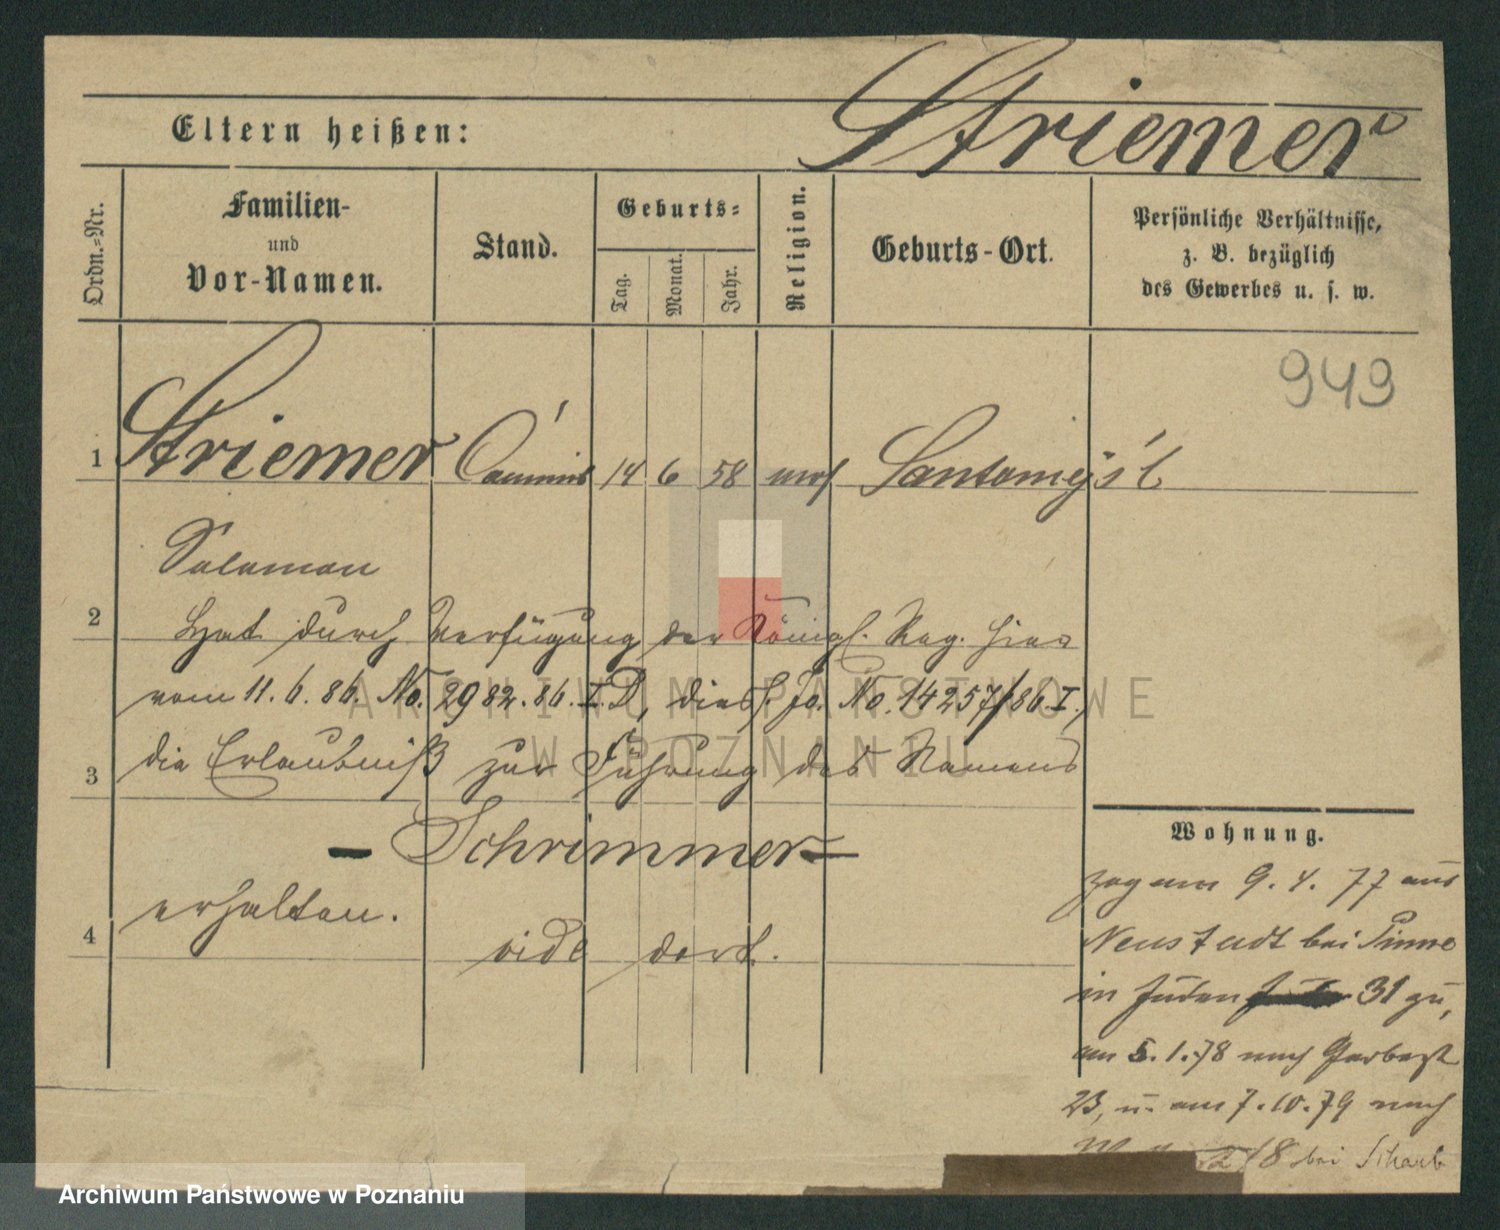 Striemer
Eltern heißen:
Ordn.=Nr.
Familien-
und
Vor-Namen.
Stand.
Geburts=
Tag.
Monat.
Jahr.
Religion.
Geburts-Ort.
Persönliche Verhältnisse,
z. B. bezüglich
des Gewerbes u. s. w.
949
1 Striemer Commis 14 6 58 mos Santomyśl
Salomon
2 Hat durch Verfügung der Königl. Reg. hier
vom 11.6.86. No. 2982.86.I.D, diess. Jo. No. 14257/86.I.,
3 die Erlaubniß zur Führung des Namens
– Schrimmer –
erhalten.
4 vide dort.
Wohnung.
zog am 9.4.77 aus
Neustadt bei Pinne
in Juden 31 zu,
am 5.1.78 nach Gerberst
23, u. am 7.10.79 nach
2/8 bei Scharb
ARCHIWUM PAŃSTWOWE
W POZNANIU
Archiwum Państwowe w Poznaniu